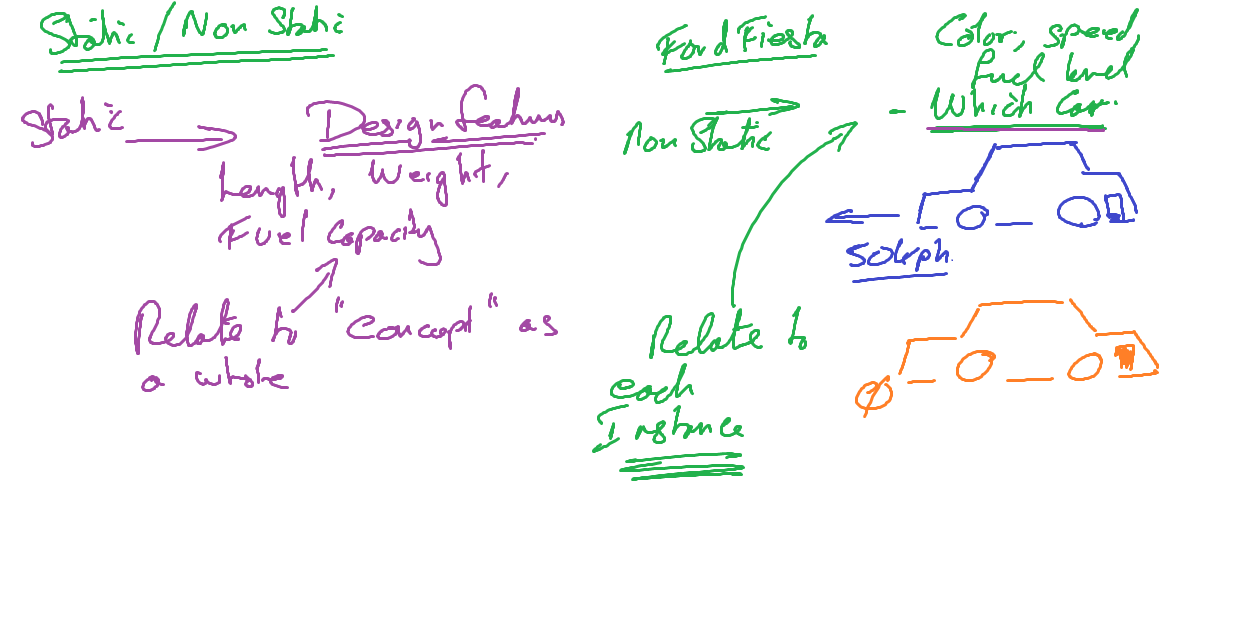 Static / Non Static
Static
Design features
Length, Weight,
Fuel Capacity
Relate to "Concept" as
a whole
Ford Fiesta
Color, speed,
fuel level
Non Static
- Which Car.
50kph.
Relate to
each
Instance